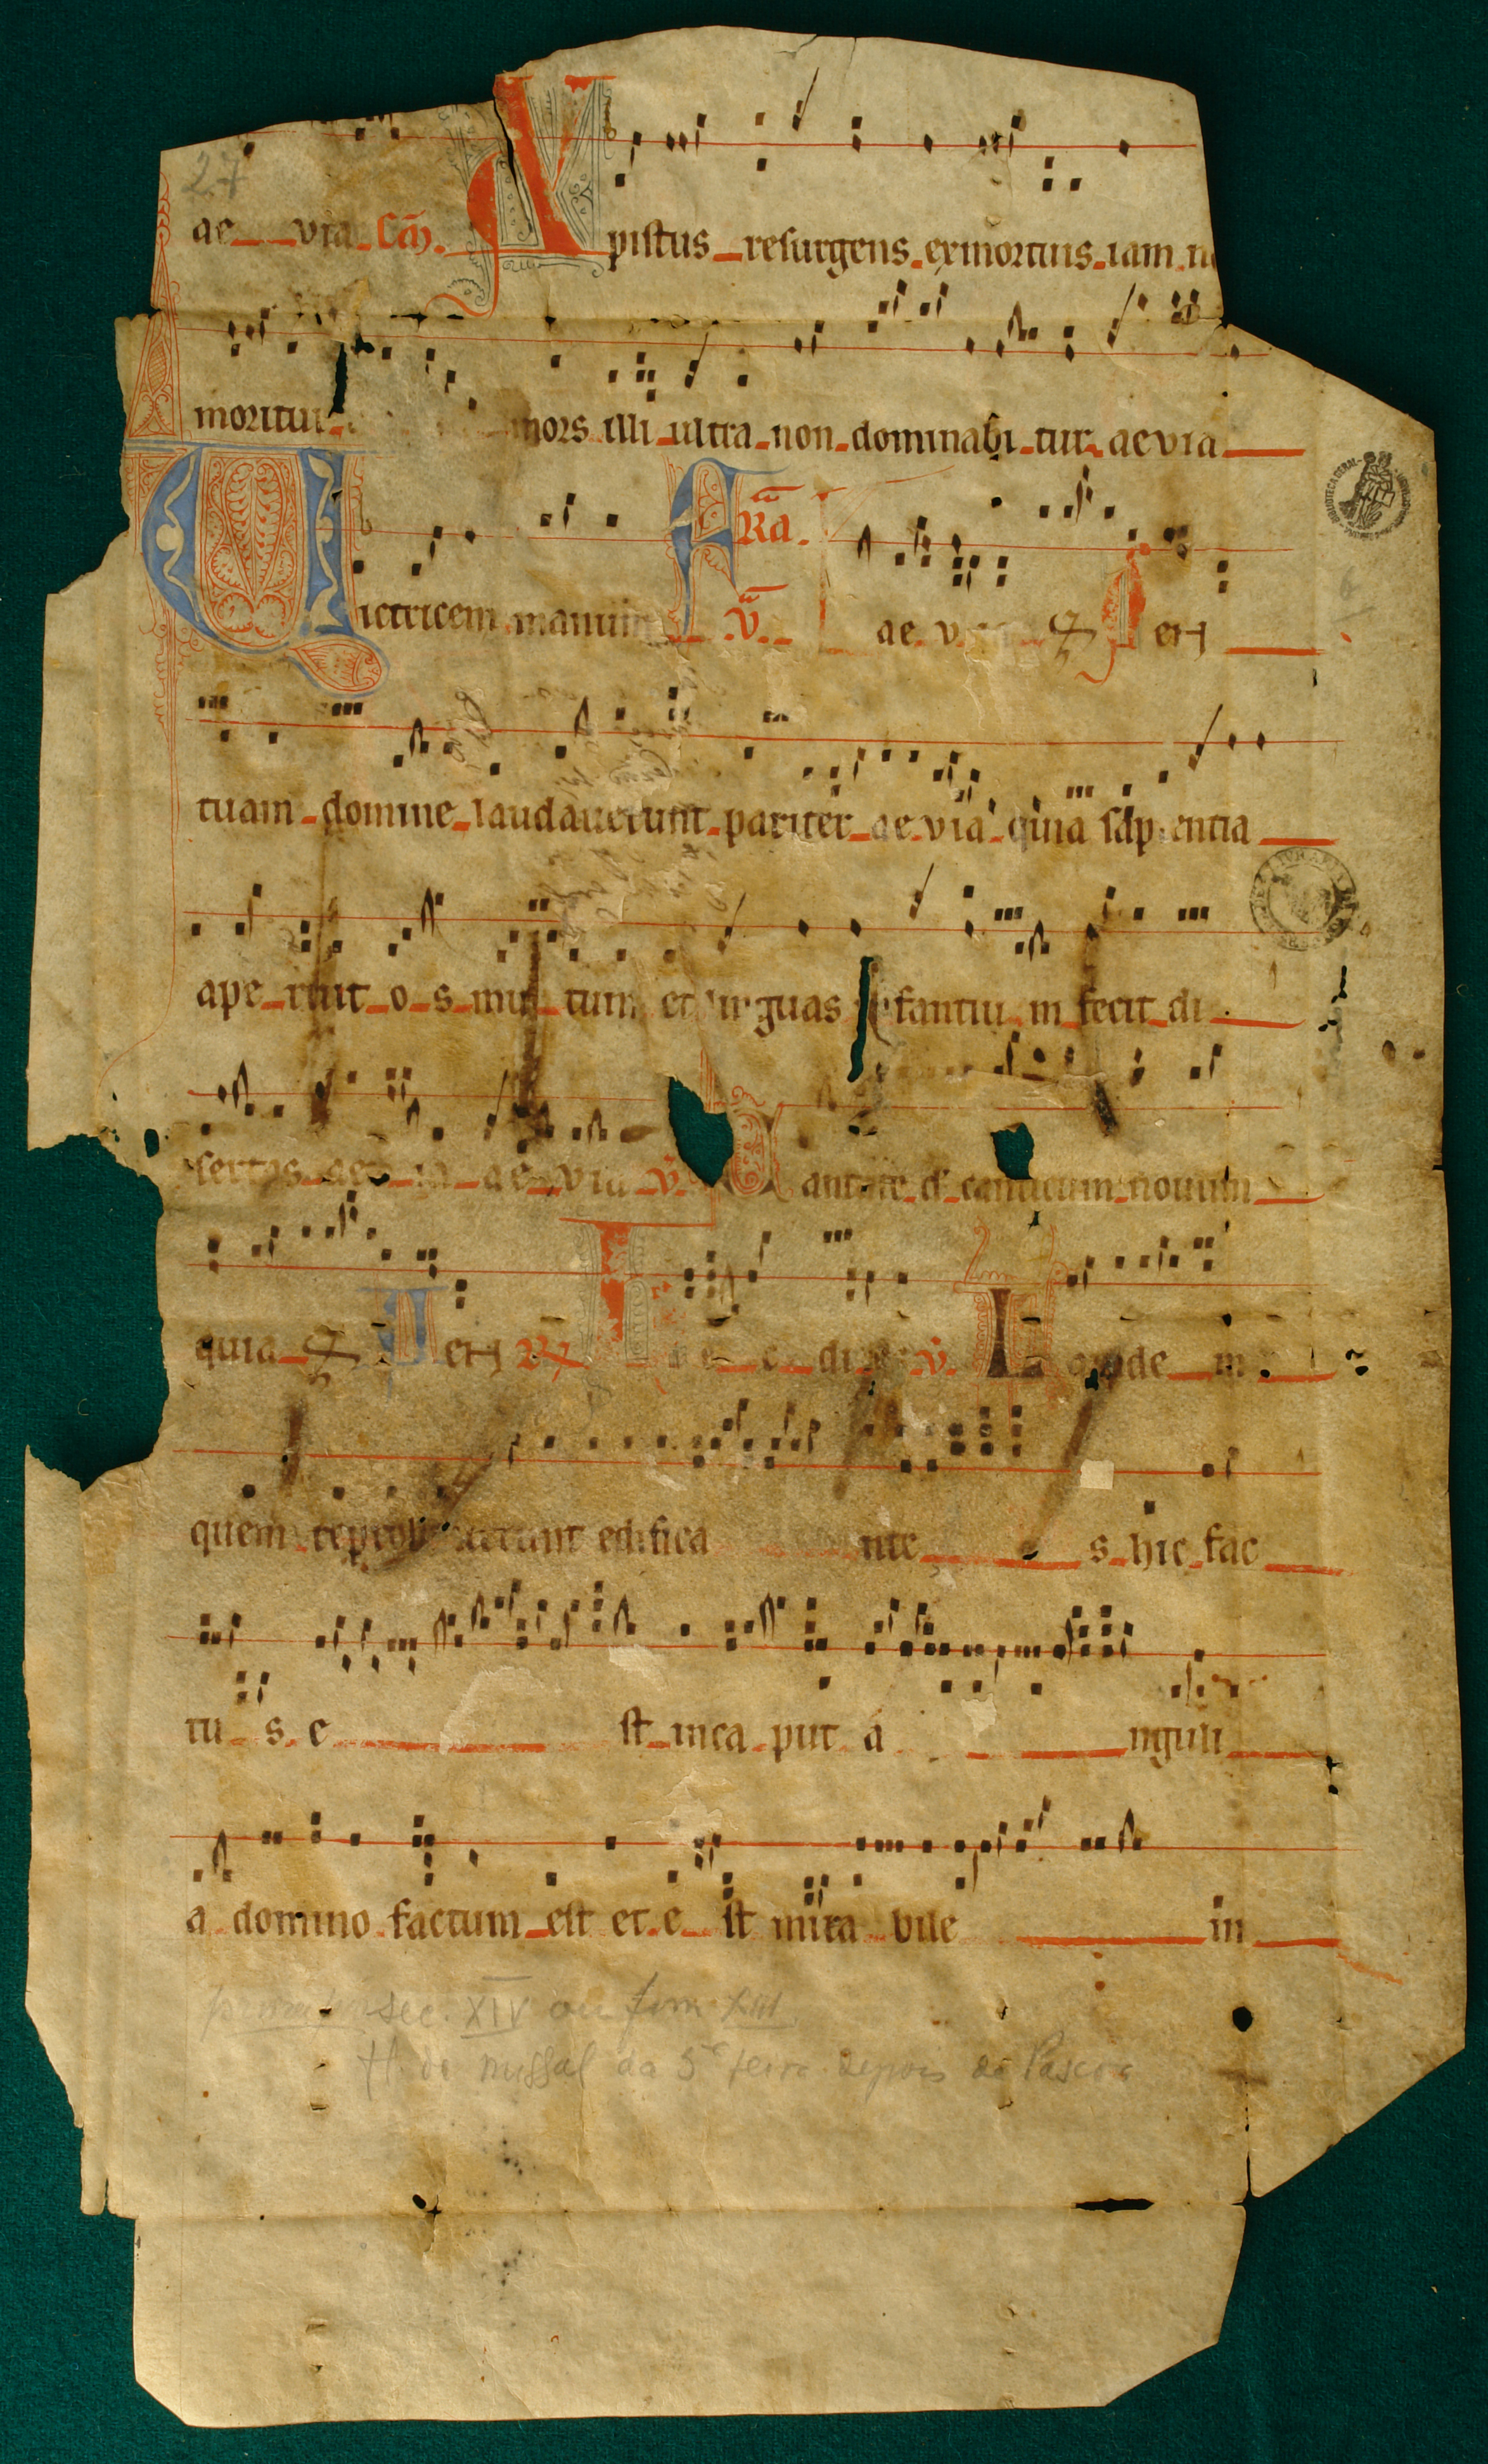 27
ae via Cō.
Xpistus resurgens ex mortuis iam n
moritur mors illi ultra non dominabi tur aevia
FRā.
Victricem manum v̄. ae v P etH
tuam domine laudaverunt pariter ae via quia sap entia
ape ruit o s mu tum et linguas infantiu m fecit di
sertas ae ia ae via v̄. Cantate d canticum novum
quia P etH R H e c di v̄. Lapide m
quem reprobaverunt edifica nte s hic fac
tu s e st inca put a nguli
a domino factum est et e st mira bile in
sec. XIV ou fim XIII
fl. de missal da 5ª feira depois da Pascoa
BIBLIOTECA GERAL
6